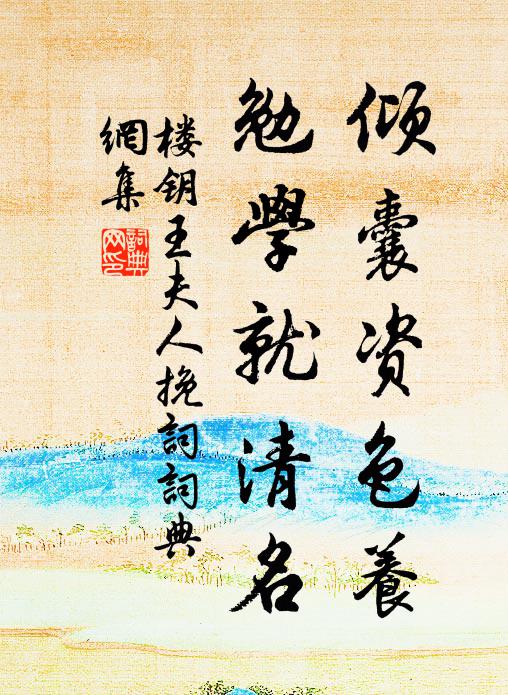 倾囊资色养
勉學就清名
楼钥王夫人挽詞詞典
網集
詞典
网印